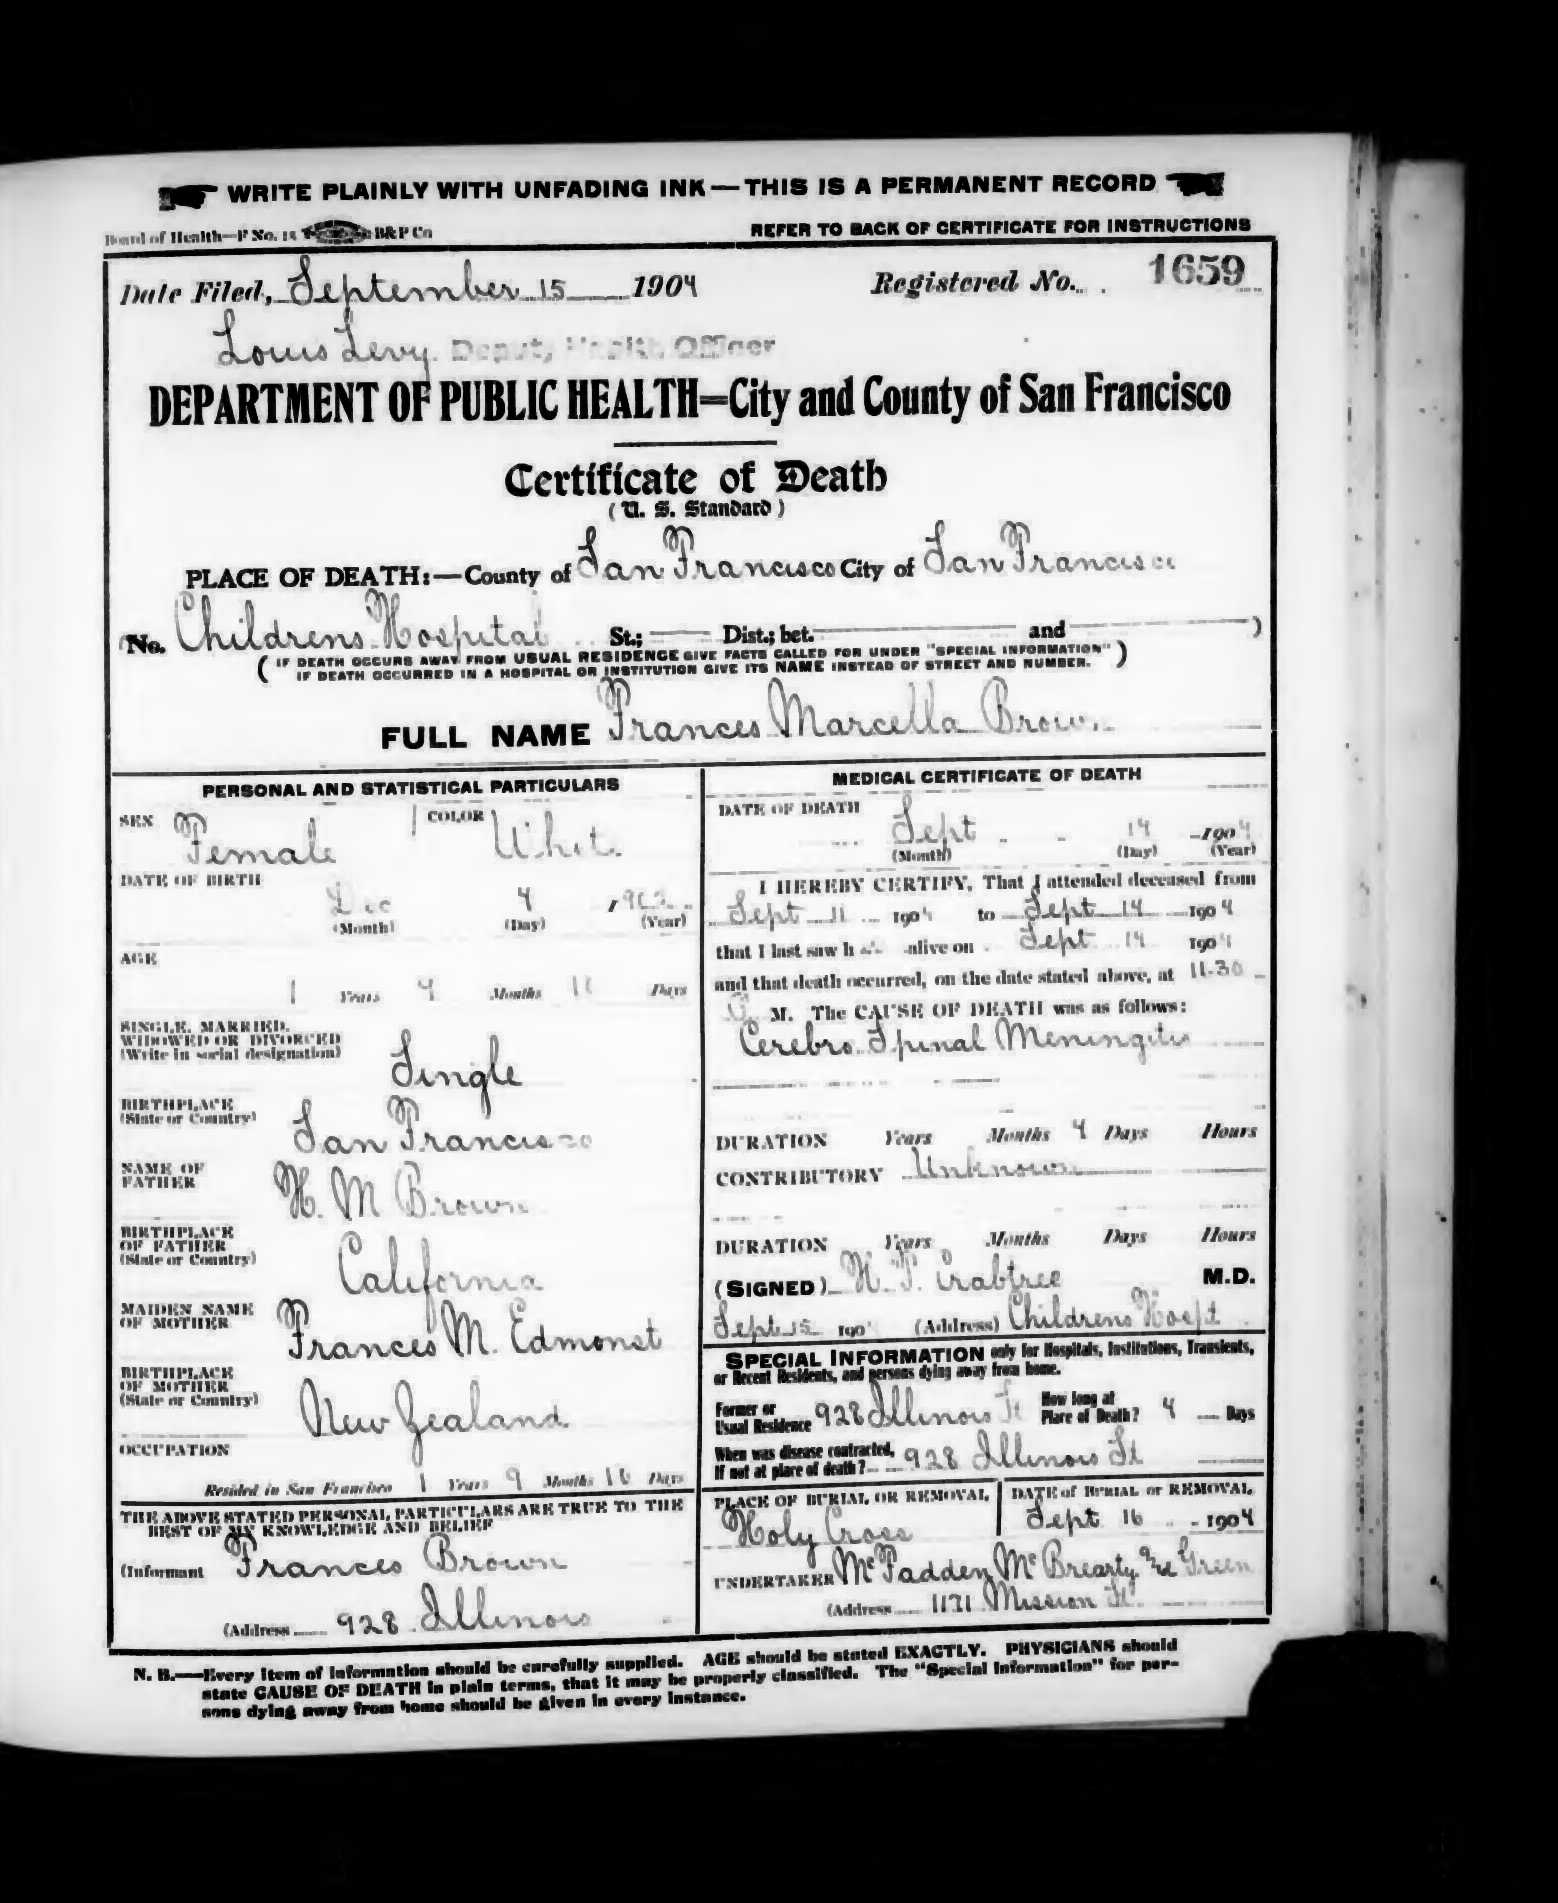 WRITE PLAINLY WITH UNFADING INK—THIS IS A PERMANENT RECORD
Board of Health—F No. 15 B&P Co REFER TO BACK OF CERTIFICATE FOR INSTRUCTIONS
Date Filed, September 15 1904 Registered No. 1659
Louis Levy. Deputy Health Officer
DEPARTMENT OF PUBLIC HEALTH=City and County of San Francisco
Certificate of Death
(U. S. Standard)
PLACE OF DEATH:—County of San Francisco City of San Francisco
No. Childrens Hospital St.; Dist.; bet. and )
( IF DEATH OCCURS AWAY FROM USUAL RESIDENCE GIVE FACTS CALLED FOR UNDER "SPECIAL INFORMATION" )
IF DEATH OCCURRED IN A HOSPITAL OR INSTITUTION GIVE ITS NAME INSTEAD OF STREET AND NUMBER.
FULL NAME Frances Marcella Brown
PERSONAL AND STATISTICAL PARTICULARS
SEX Female COLOR White
DATE OF BIRTH
Dec 4 , 190
(Month) (Day) (Year)
AGE
1 Years 9 Months Days
SINGLE, MARRIED,
WIDOWED OR DIVORCED
(Write in social designation)
Single
BIRTHPLACE
(State or Country)
San Francisco
NAME OF
FATHER
H. M Brown
BIRTHPLACE
OF FATHER
(State or Country)
California
MAIDEN NAME
OF MOTHER
Frances M. Edmonst
BIRTHPLACE
OF MOTHER
(State or Country)
New Zealand
OCCUPATION
Resided in San Francisco 1 Years 9 Months 10 Days
THE ABOVE STATED PERSONAL PARTICULARS ARE TRUE TO THE
BEST OF MY KNOWLEDGE AND BELIEF
(Informant Frances Brown
(Address 928 Illinois
MEDICAL CERTIFICATE OF DEATH
DATE OF DEATH
Sept 14 1904
(Month) (Day) (Year)
I HEREBY CERTIFY, That I attended deceased from
Sept 11 1904 to Sept 14 1904
that I last saw h alive on Sept 14 1904
and that death occurred, on the date stated above, at 11.30
M. The CAUSE OF DEATH was as follows:
Cerebro Spinal Meningitis
DURATION Years Months 4 Days Hours
CONTRIBUTORY Unknown
DURATION Years Months Days Hours
(SIGNED) H. P. Crabtree M.D.
Sept 15 190 (Address) Childrens Hospt
SPECIAL INFORMATION only for Hospitals, Institutions, Transients,
or Recent Residents, and persons dying away from home.
Former or
Usual Residence 928 Illinois St How long at
Place of Death? 4 Days
When was disease contracted,
If not at place of death? 928 Illinois St
PLACE OF BURIAL OR REMOVAL
Holy Cross
DATE of BURIAL or REMOVAL
Sept 16 1904
UNDERTAKER McFadden McBrearty and Green
(Address 1171 Mission St
N. B.—Every item of information should be carefully supplied. AGE should be stated EXACTLY. PHYSICIANS should
state CAUSE OF DEATH in plain terms, that it may be properly classified. The "Special Information" for per-
sons dying away from home should be given in every instance.